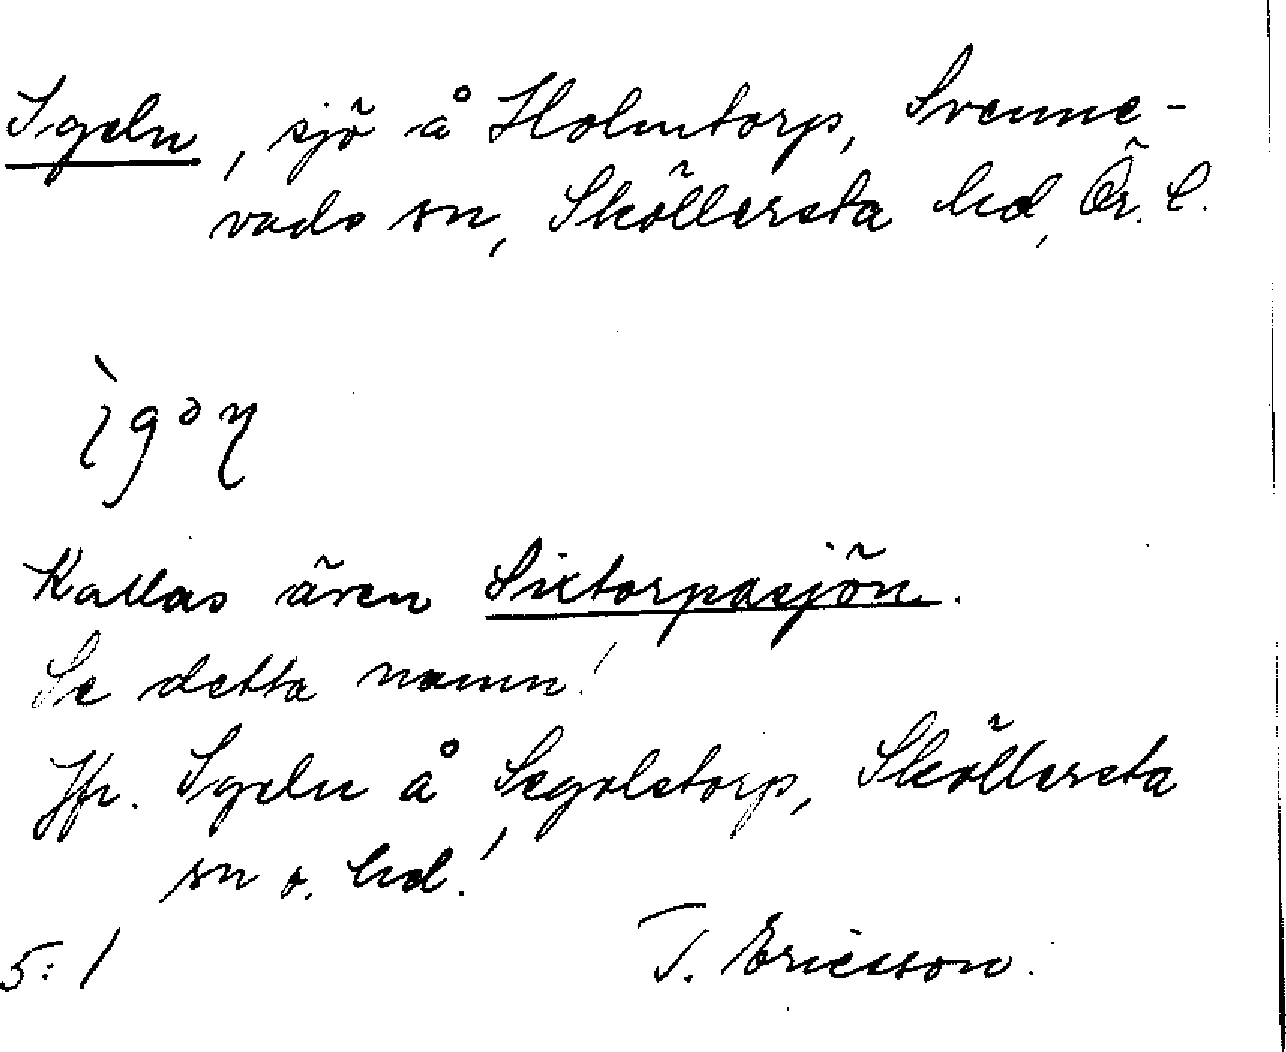 Igeln, sjö å Holmtorp, Svenne-
vads sn, Sköllersta hd, Ör. l.
Kallas även Sixtorpasjön.
Se detta namn!
Jfr. Igeln å Segolstorp, Sköllersta
sn o. hd.!
5:1 T. Ericsson.